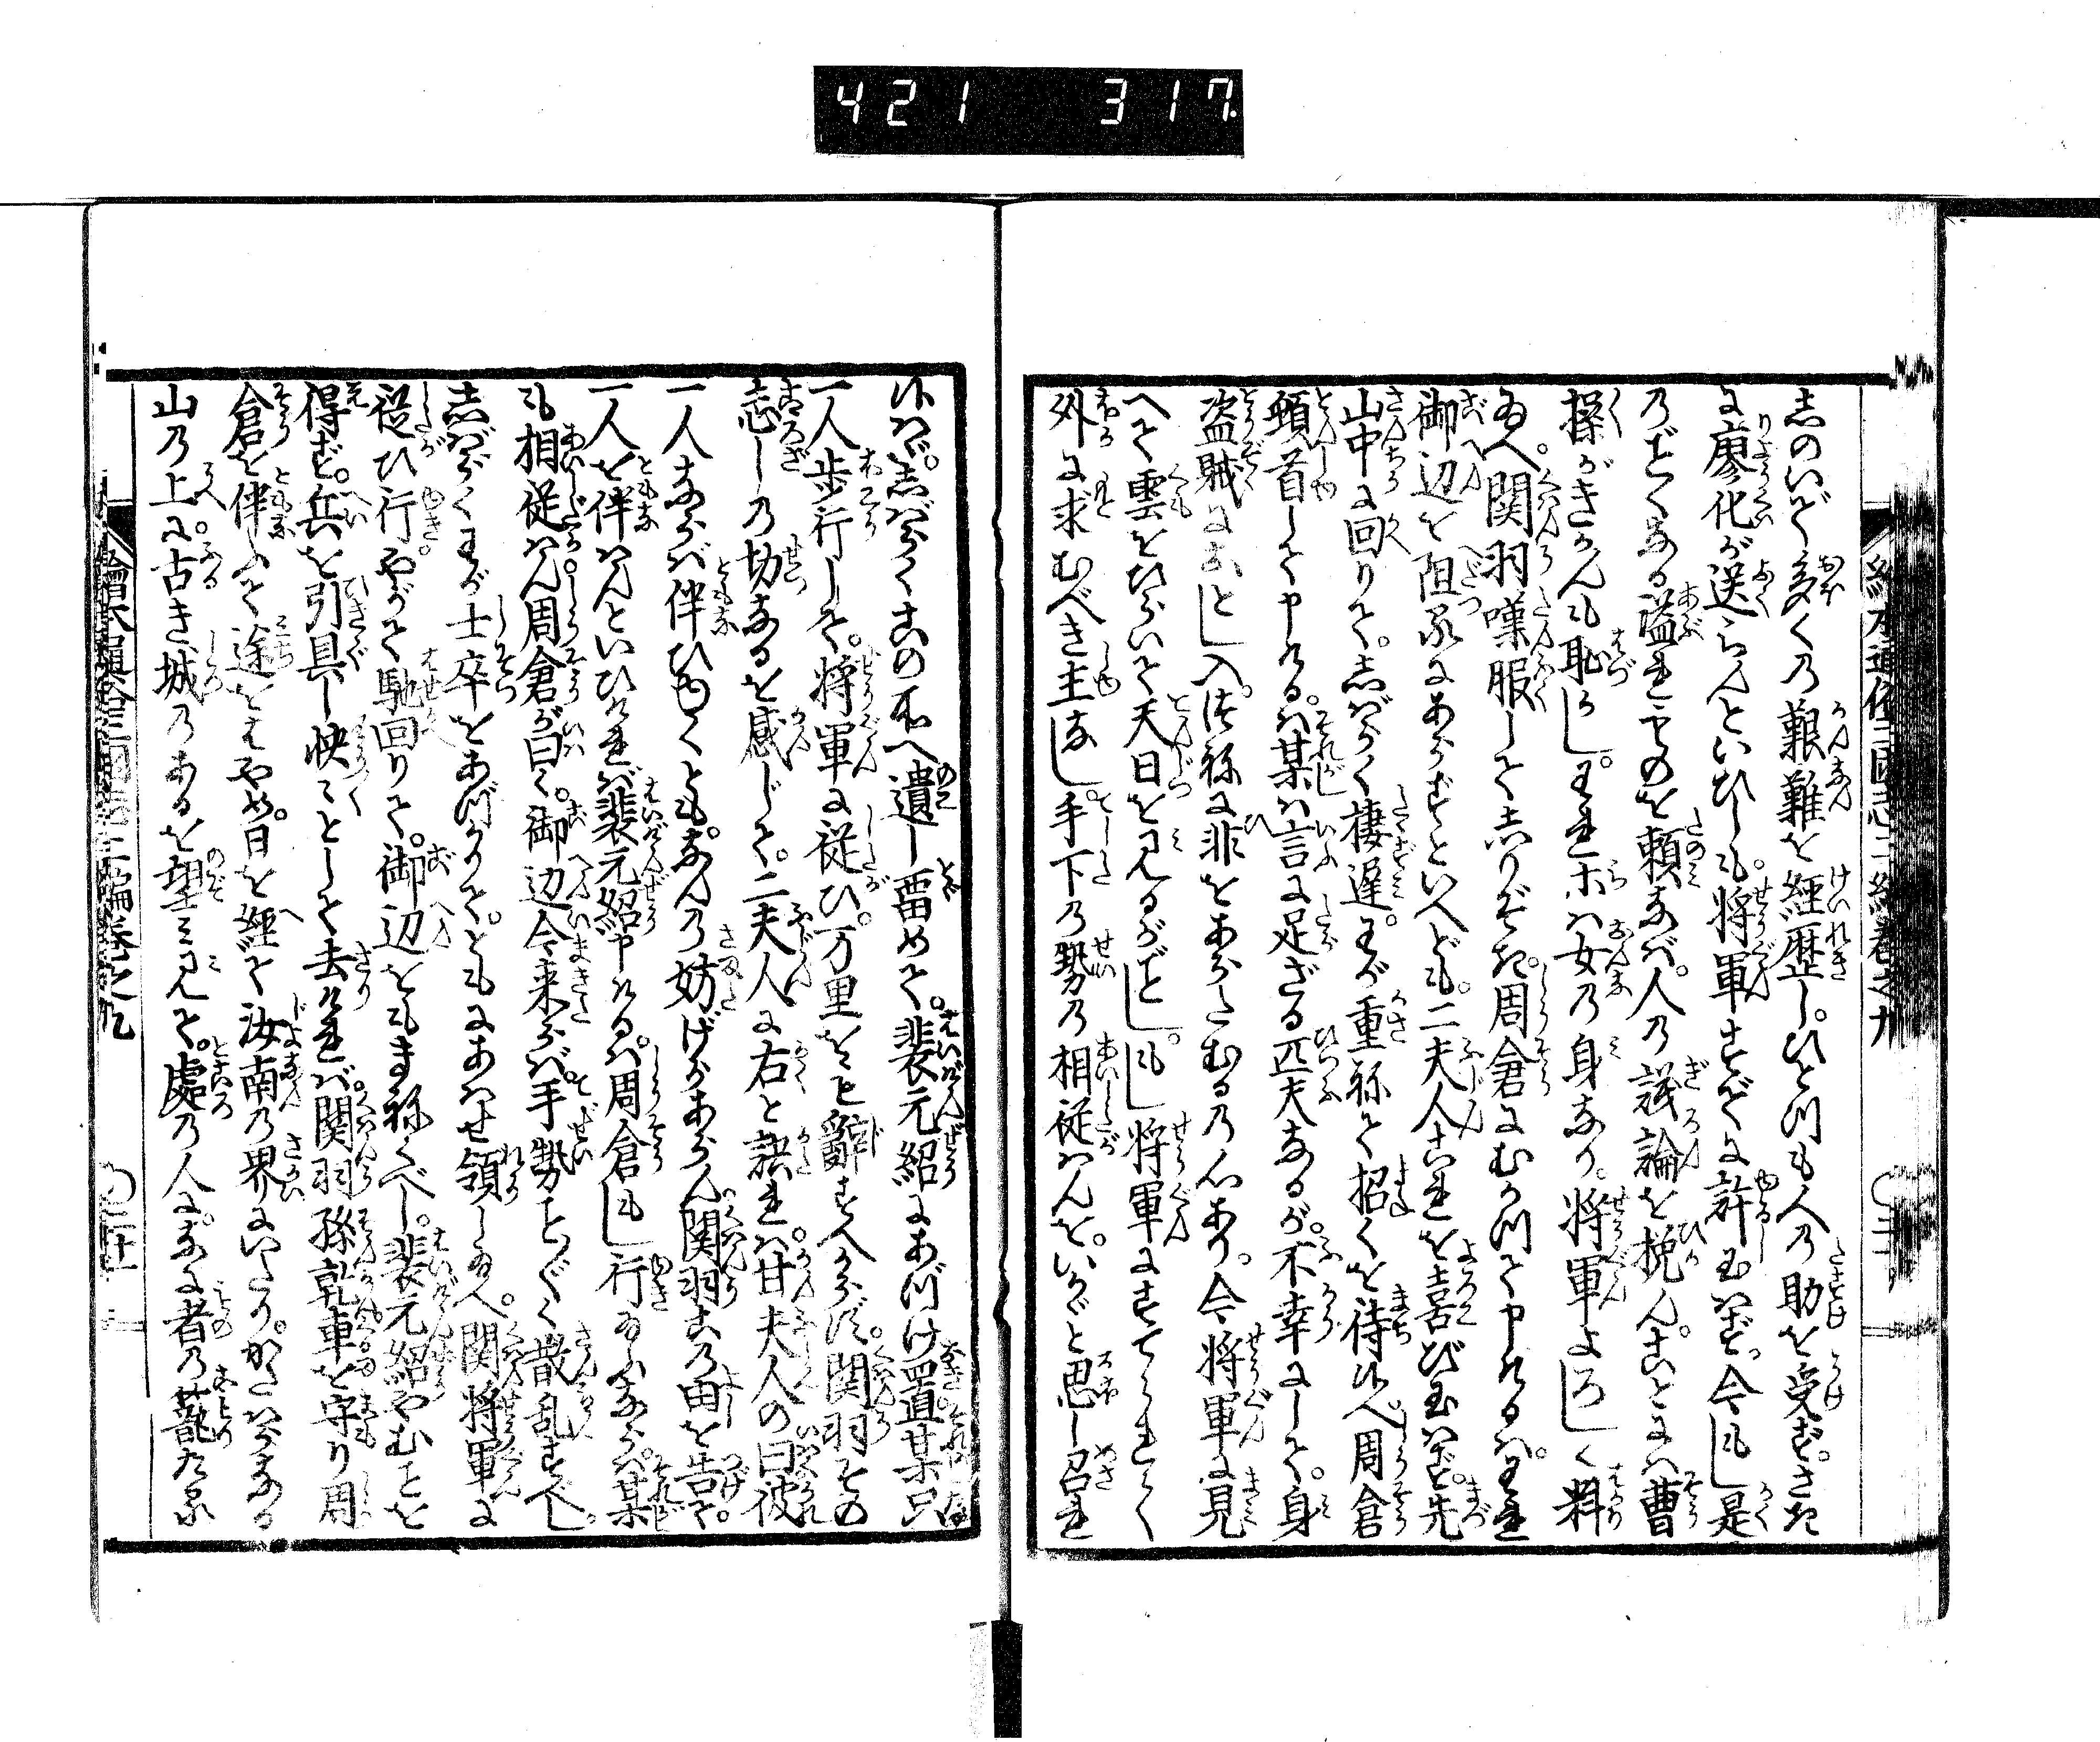 421 317
志のいで多くの艱難を経歴し。ひとつも人の助を受ず。さき
に廖化が送らんといひしも。将軍すでに許し玉はず。今もし是
のごとくなる溢れものを頼なば。人の議論を挽ん。ことには曹
操がきかんも恥かし。それ未は女の身なり。将軍よろしく料
給へ。関羽嘆服してしりぞき。周倉にむかつて申けるは。それ
御辺を阻るにあらずといへども。二夫人これを喜び玉はず。先
山中に回りて。しばらく棲遅。わが重ねて招くを待候へ。周倉
頓首して申ける。は某は言に足ざる匹夫なるが。不幸にして。身
盗賊におとし入。つねに非をあらたむるの心あり。今将軍に見
へて雲をひらいて天日を見るがごとし。もし将軍にすてられてく
外に求むべき主なし。手下の勢の相従はんを。いかゞと思し召れ
候はゞ。しばらくこの所へ遺し畄めて。裴元紹にあづけ置某只
一人歩行して。将軍に従ひ。万里をも辞すべからず。関羽その
志しの切なるを感じて。二夫人に右と訣れば。甘夫人の曰彼
一人ならば伴ひゆくとも。なんの妨げかあらん。関羽この由を告て。
一人を伴はんといひければ裴元紹申けるは。周倉もし行給ふならば。某
も相従はん。周倉が曰く。御辺今来らば。手勢ことごとく散乱すべし。
しばらくわが士卒をあづかりて。ともにあはせ領し給へ。関将軍に
従ひ行。やがて馳回りて。御辺をもまねくべし。裴元紹やむことを
得ず。兵を引具し怏々として去ければ。関羽孫乾車を守り周
倉を伴ふて途をはやめ。日を経て汝南の界にいたり。かたはらなる
山の上に。古き城のあるを望み見て。處の人に。なに者の篭たる
繪本通俗三國志三編巻之九